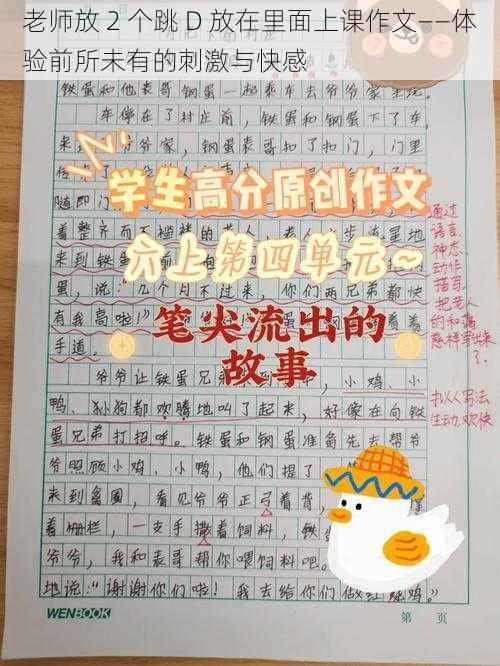 老师放 2 个跳 D 放在里面上课作文——体
验前所未有的刺激与快感
铁蛋和他表哥钢蛋一起乘车去爷爷家
车停在了村庄前,铁蛋和钢蛋下了车,
来 爷家,钢蛋表哥扣了扣门,门里
学生高分原创作文
随即门
着整齐而不
六上第四单元~
来到铁蛋
蛋,说:“几个月不过来,你们两兄弟都快
有我高啦!
笔尖流出的
故事
手道。
通过
语言
神态
动作
描写,
把老人
的和蔼
慈祥写出来
了。
爷爷让铁蛋兄弟
小鸡、小
鸭、小狗都欢腾地叫了起来,好像在向铁
蛋兄弟打招呼。铁蛋和钢蛋准备先去帮爷
爷照顾小鸡、小鸭,他们提了
拟人写法
生动,欢快
来到畜圈,看见爷爷正弓着背,
着栅栏,一支手撒着饲料,铁
爷爷,我和表哥帮你喂饲料吧。
地说:“谢谢你们啦!我去给你们做红烧鸡。”
WENBOOK
第 页